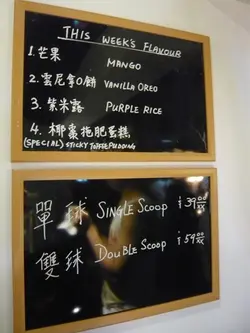 THIS WEEK'S FLAVOUR
1. 芒果 MANGO
2. 雲尼拿O餅 VANILLA OREO
3. 紫米露 PURPLE RICE
4. 椰棗拖肥蛋糕
(SPECIAL) STICKY TOFFEE PUDDING
單球 SINGLE SCOOP 39
雙球 DOUBLE SCOOP 59